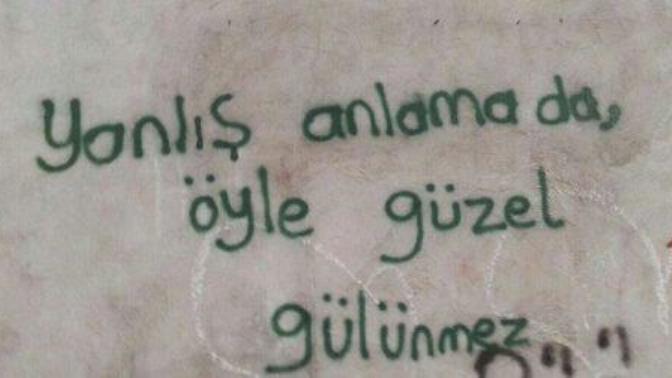 Yanlış anlama da,
öyle güzel
gülünmez